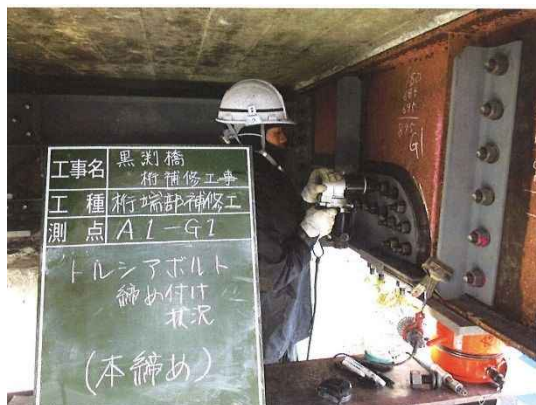 工事名 黒渕橋
桁補修工事
工種 桁端部補修工
測点 A1-G1
トルシアボルト
締め付け
状況
(本締め)
G1